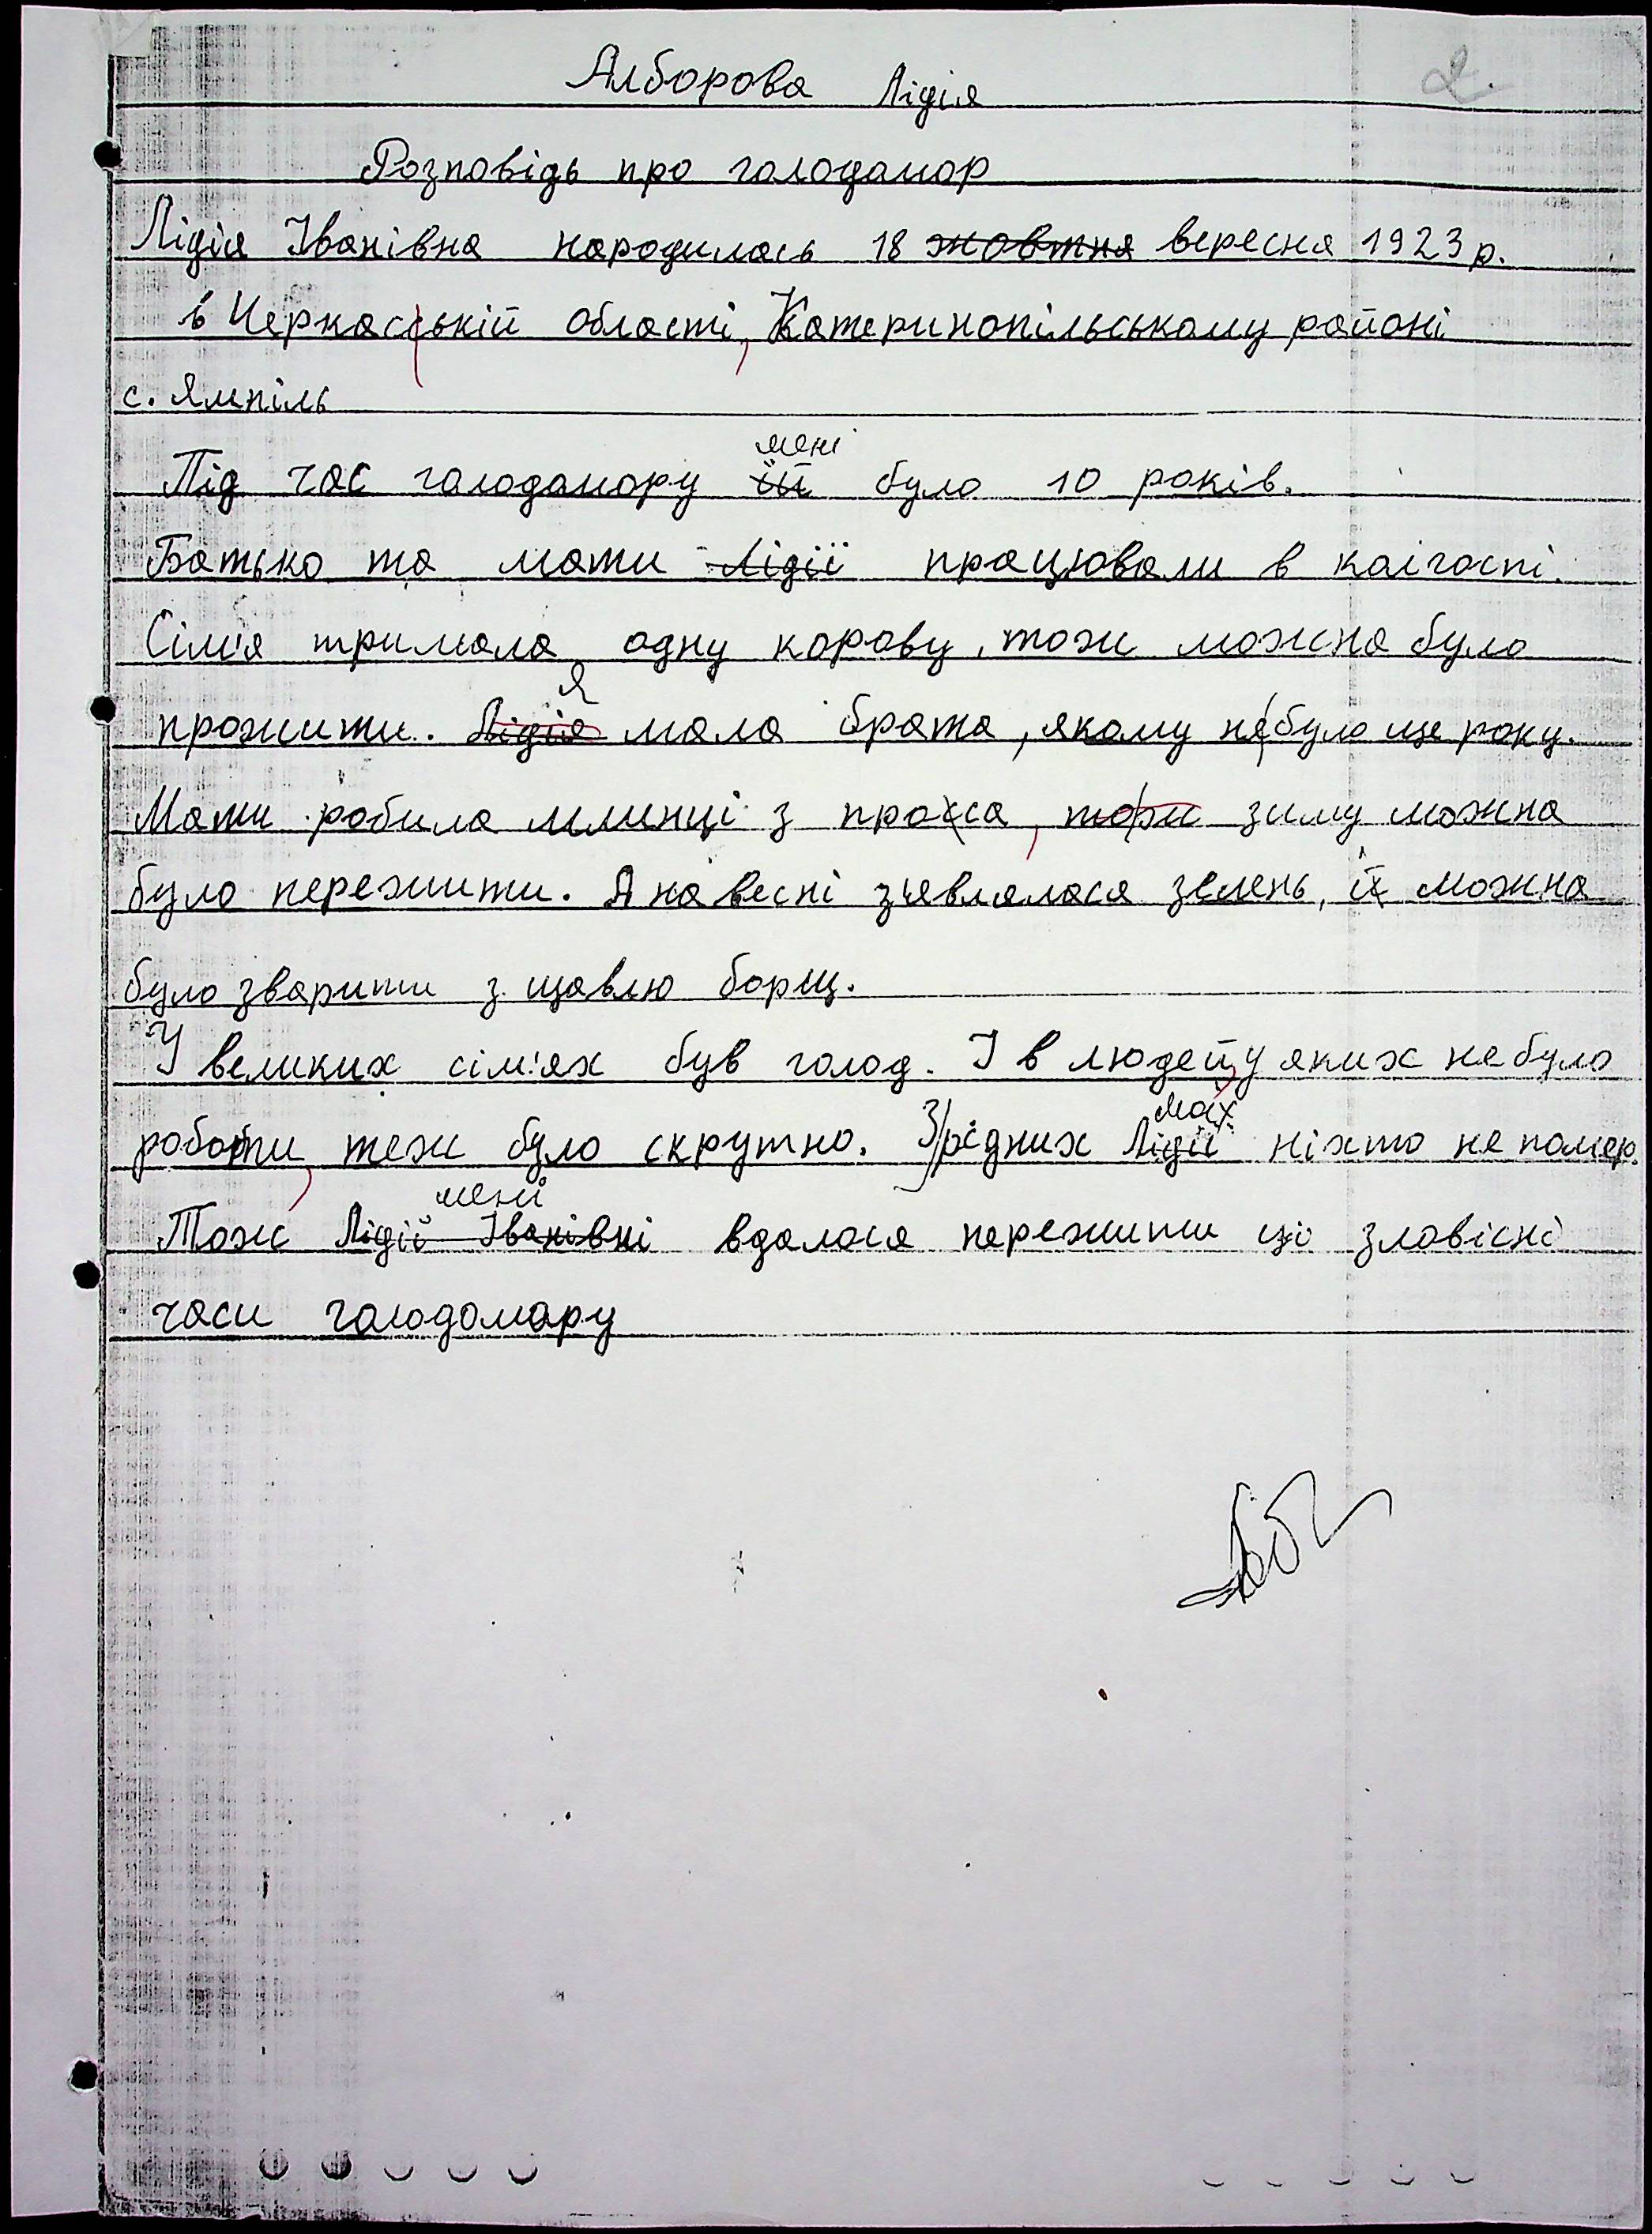 Алборова Лідія
2.
Розповідь про голодамор
Лідія Іванівна народилась 18 жовтня вересня 1923 р.
в Черкасській області, Катеринопільському районі
с. Ямпіль
мені
Під час голодамору її було 10 років.
Батько та мати Лідії працювали в колгоспі.
Сім'я тримала одну корову, тож можна було
я
прожити. Лідія мала брата, якому не було ще року.
Мати робила млинці з проса, зиму можна
було пережити. А на весні з'являлася зелень, й можна
було зварити з щавлю борщ.
У великих сім'ях був голод. І в людей, у яких не було
моїх
роботи, теж було скрутно. З рідних Лідії ніхто не помер.
мені
Тож Лідії Іванівні вдалося пережити ці зловісні
часи голодомору